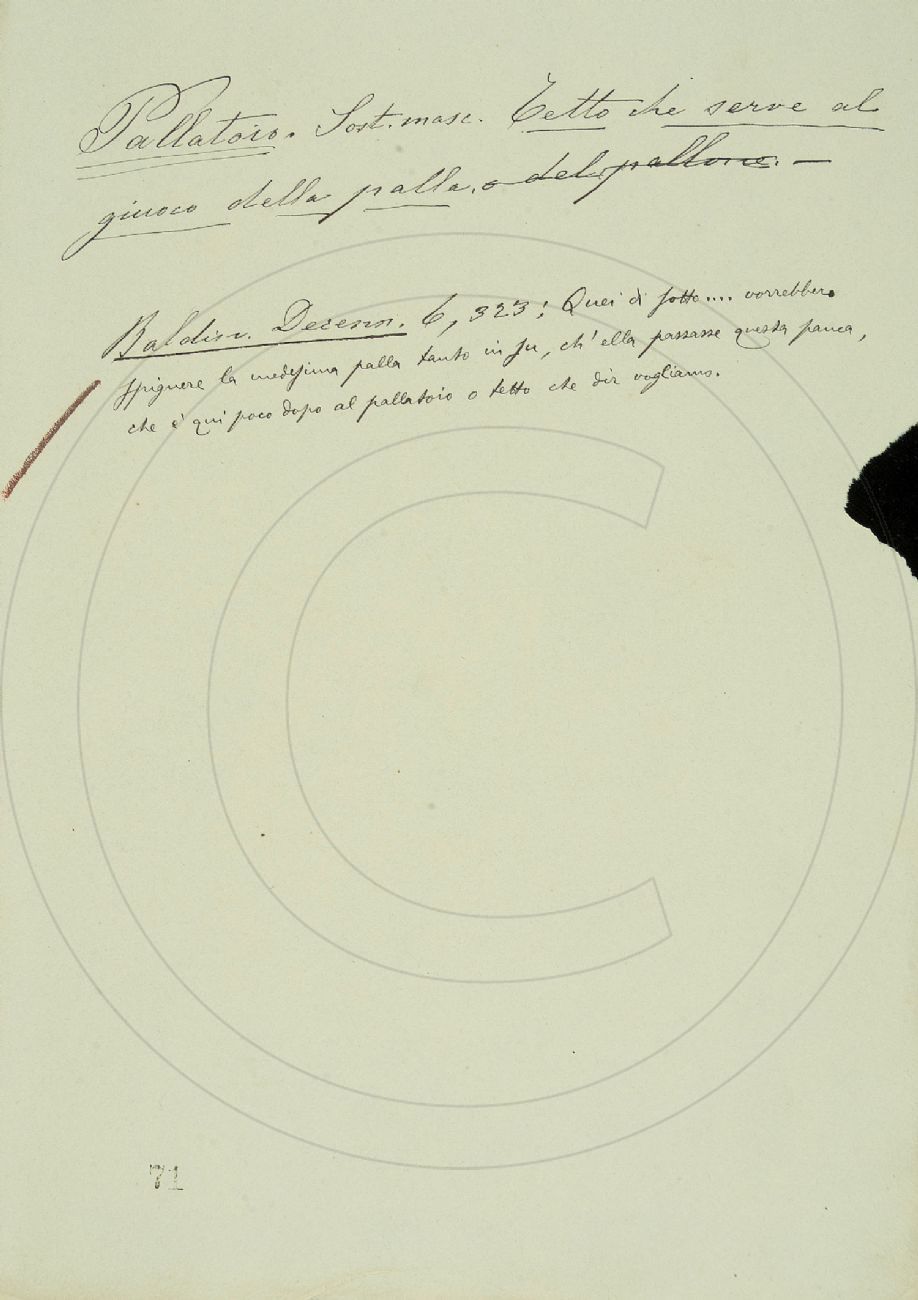 Pallatoio. Sost. masc. Tetto che serve al
giuoco della palla. o del pallone. —
Baldin. Decenn. 6, 323: Quei di sotto.... vorrebbero
spignere la medesima palla tanto in su, ch'ella passasse questa panca,
che è qui poco dopo al pallatoio o tetto che dir vogliamo.
71